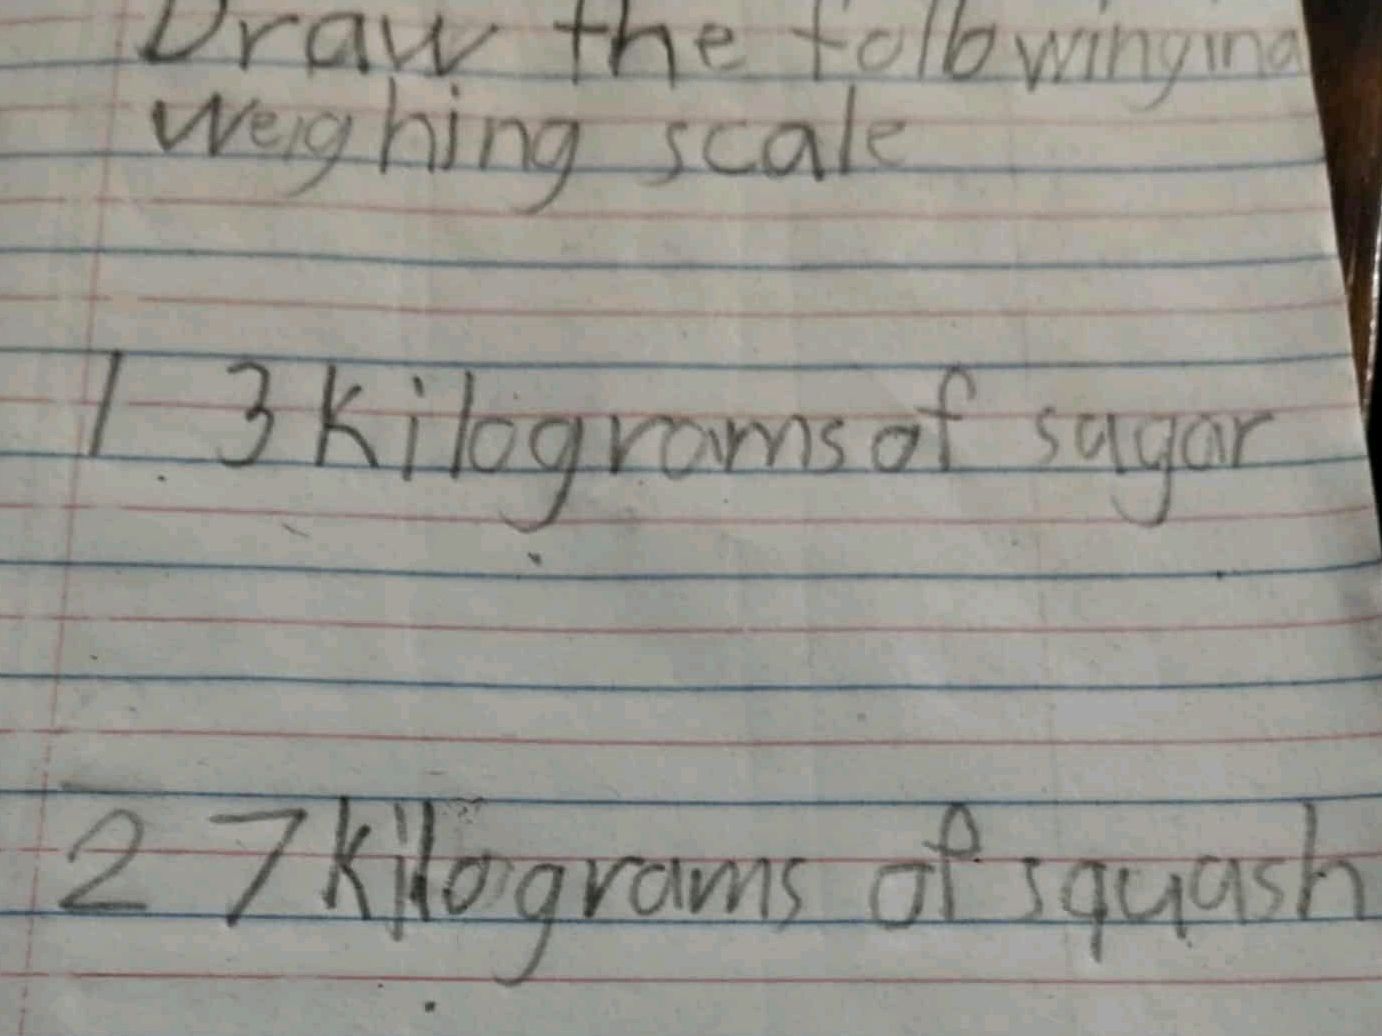 Draw the followinging a
weighing scale
1 3 kilograms of sagar
2 7 kilograms of squash